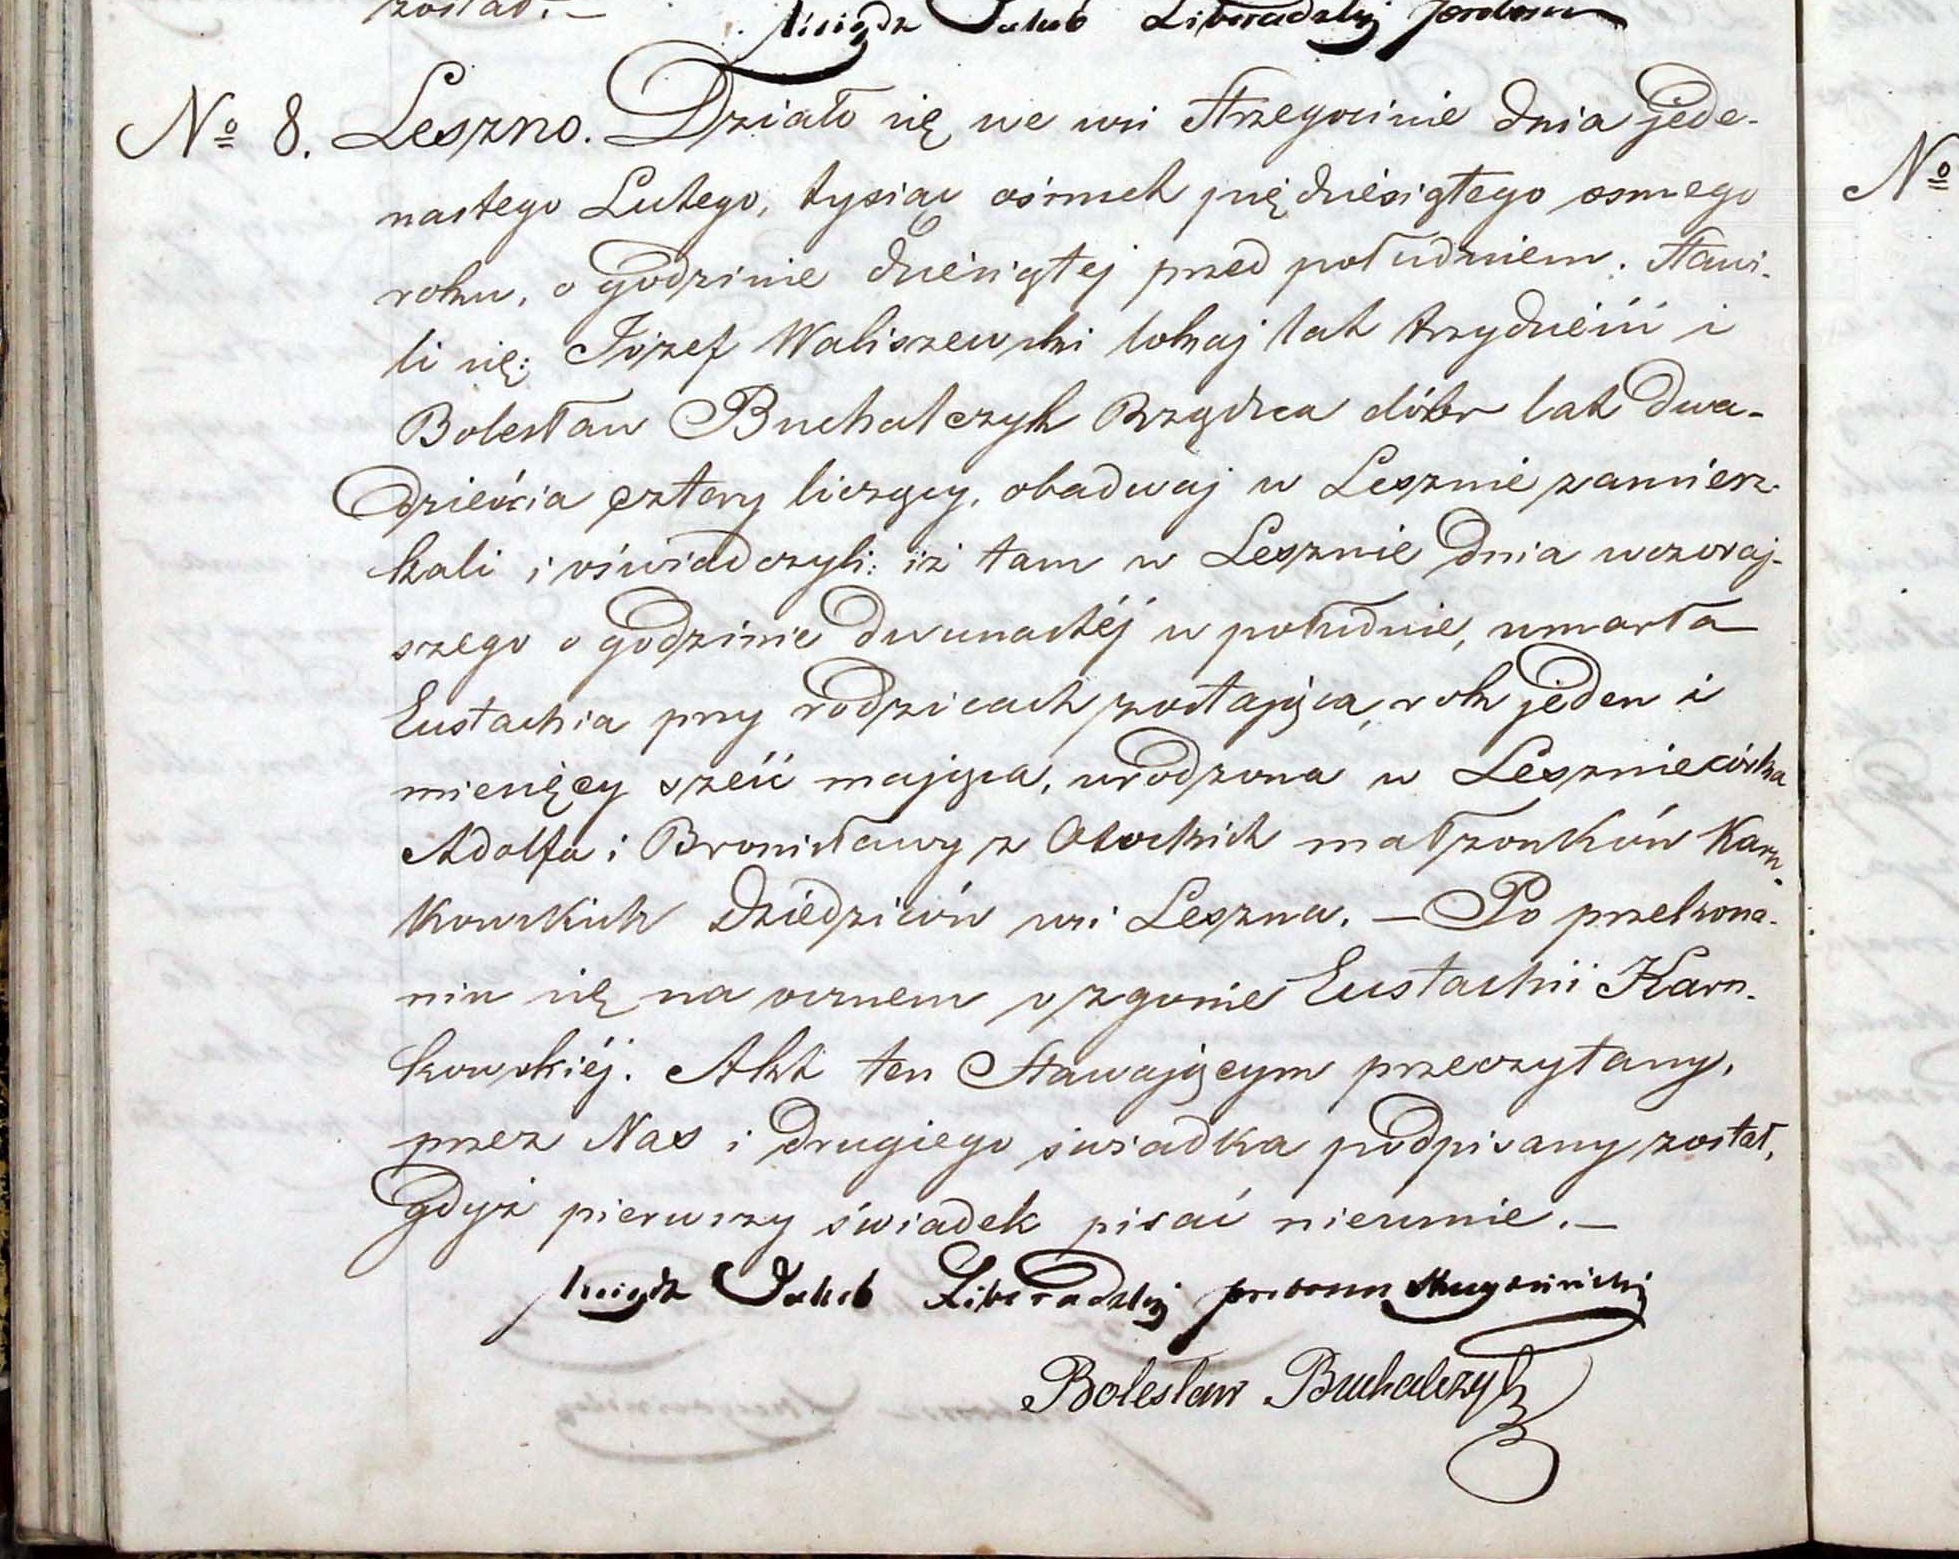 został. —
Ksiądz Jakub Liberadzky proboszcz
№ 8. Leszno. Działo się we wsi Strzegocinie dnia jede-
nastego Lutego, tysiąc ośmset pięśdziesiątego osmego
roku, o godzinie dziesiątej przed południem. Stawi-
li się: Józef Waliszewski lokaj lat trzydzieści i
Bolesław Buchalczyk Rządca dóbr lat dwa-
dzieścia cztery liczący, obadwaj w Lesznie zamiesz-
kali i oświadczyli: iż tam w Lesznie dnia wczoraj-
szego o godzinie dwunastéj w południe, umarła
Eustachia przy rodzicach zostająca, rok jeden i
miesięcy sześć mająca, urodzona w Lesznie córka
Adolfa i Bronisławy z Otockich małżonków Karn-
kowskich Dziedziców wsi Leszna. — Po przekona-
niu się na ocznem o zgonie Eustachii Karn-
kowskiéj. Akt ten Stawającym przeczytany,
przez Nas i drugiego świadka podpisany został,
gdyż pierwszy świadek pisać nieumie. —
Ksiądz Jakub Liberadzky proboszcz Strzgociński
Bolesław Buchalczyk
№